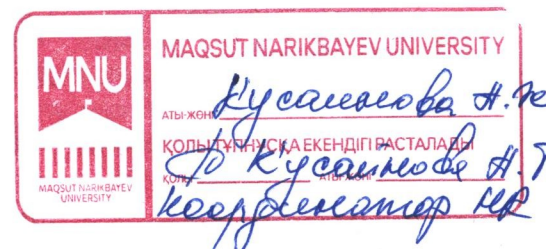 MNU
MAQSUT NARIKBAYEV
UNIVERSITY
MAQSUT NARIKBAYEV UNIVERSITY
АТЫ-ЖӨНІ Кусаинова Н.
ҚОЛЫ ТҮПНҰСҚА ЕКЕНДІГІ РАСТАЛАДЫ
ҚОЛЫ АТЫ-ЖӨНІ Кусаинова Н.
координатор HR